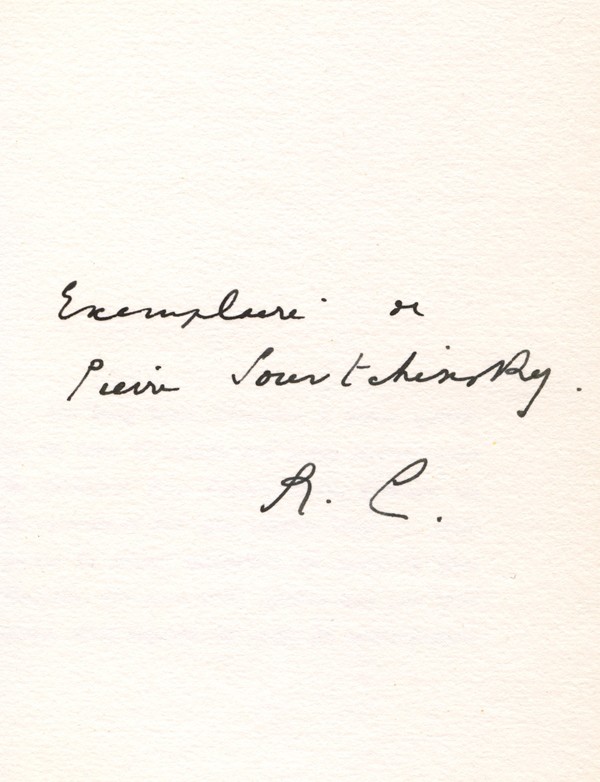 Exemplaire de
Pierre Souvtchinsky.
R. C.